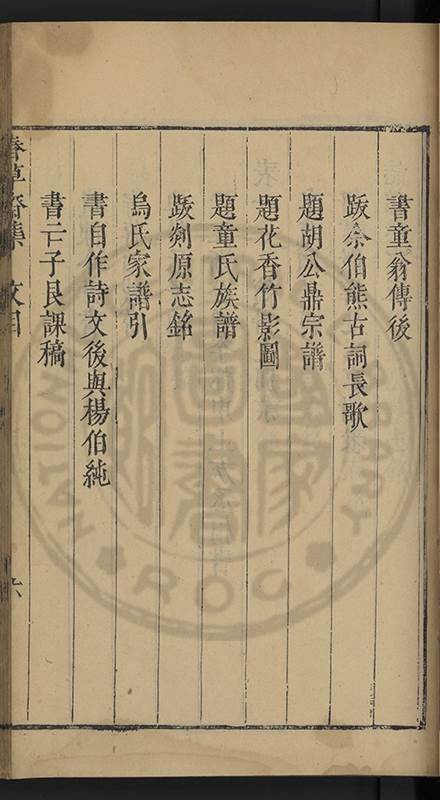 書童翁傳後
跋余伯熊古詞長歌
題胡公鼎宗譜
題花香竹影圖
題童氏族譜
跋剡原志銘
烏氏家譜引
書自作詩文後與楊伯純
書亡子艮課稿
草齋集 文目 六
NATIONAL
LIBRARY
ROC